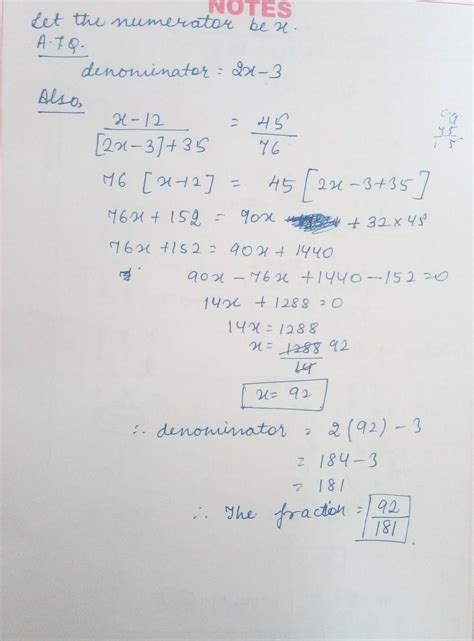 NOTES
Let the numerator be x.
A.T.Q.
denominator = 2x-3
Also,
x-12 / [2x-3]+35 = 45 / 76
76 [x+2] = 45 [2x-3+35]
76x + 152 = 90x + 32×45
76x +152 = 90x + 1440
90x - 76x + 1440 - 152 = 0
14x + 1288 = 0
14x = 1288
x = 1288 / 14 92
x = 92
∴ denominator = 2(92) - 3
= 184 - 3
= 181
∴ The fraction = 92 / 181 .